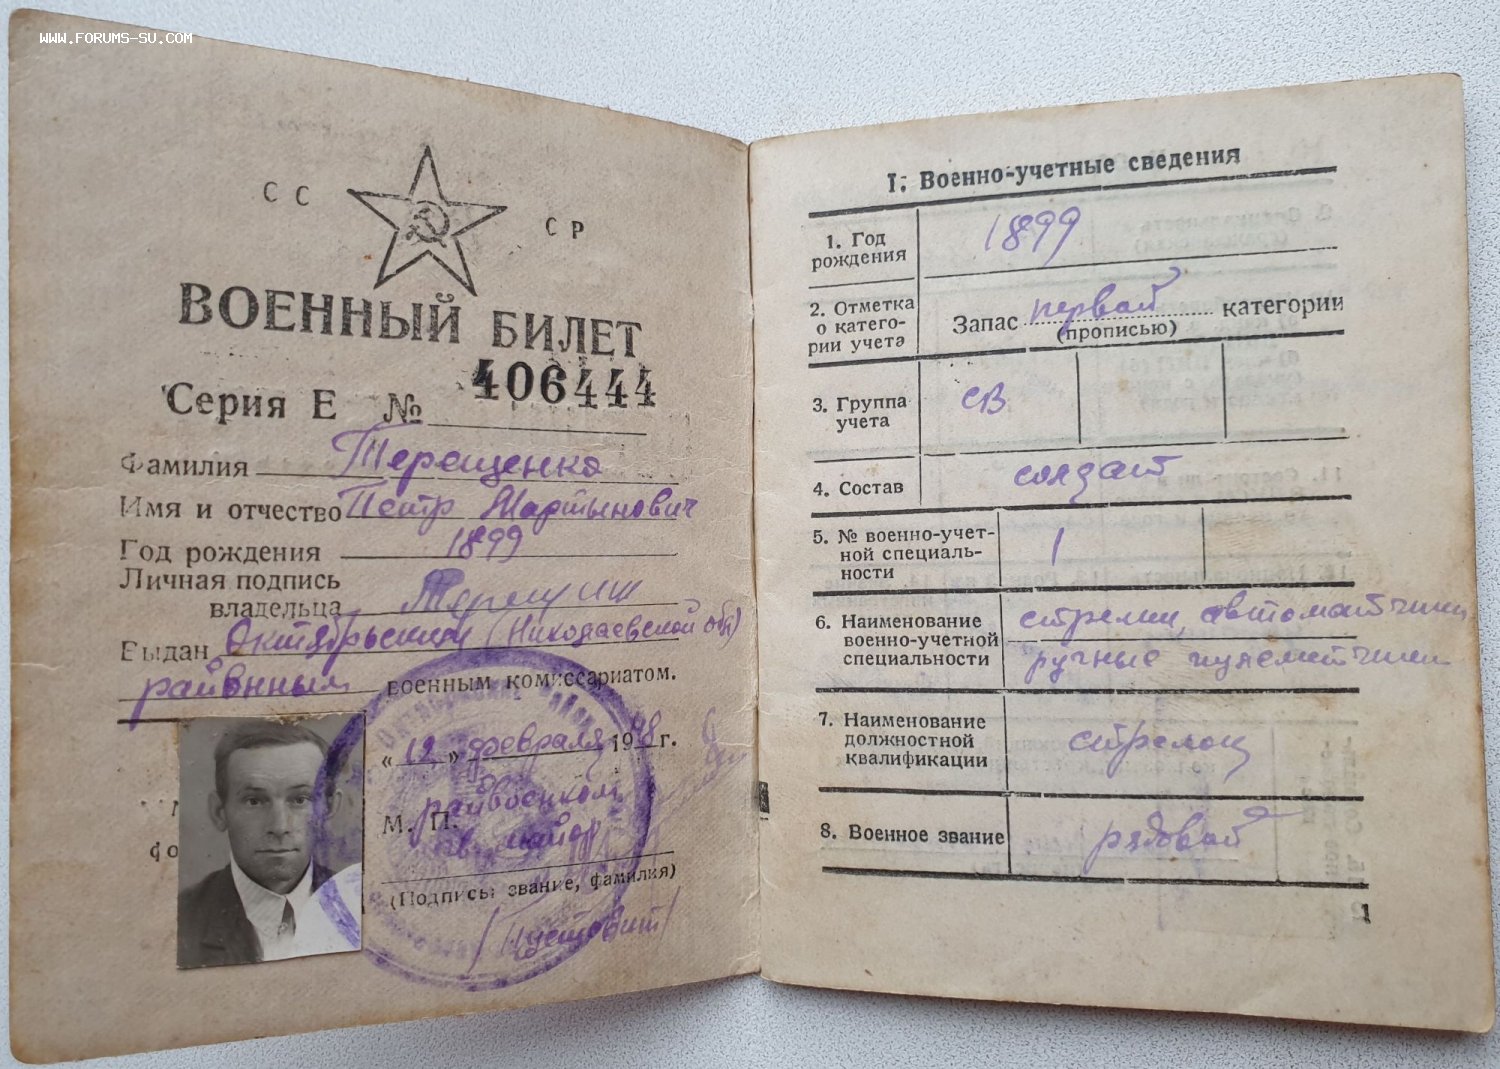 WWW.FORUMS-SU.COM
СС СР
ВОЕННЫЙ БИЛЕТ
Серия Е № 406444
Фамилия Терещенко
Имя и отчество Петр Мартынович
Год рождения 1899
Личная подпись
владельца
Выдан Октябрьским (Николаевской обл)
районным военным комиссариатом.
«12» февраля 1948 г.
райвоенком
М. П.
майор
(Подпись, звание, фамилия)
I. Военно-учетные сведения
1. Год
рождения
1899
2. Отметка
о катего-
рии учета
Запас первой категории
(прописью)
3. Группа
учета
СВ
4. Состав
солдат
5. № военно-учет-
ной специаль-
ности
1
6. Наименование
военно-учетной
специальности
стрелки, автоматчики
ручные пулеметчики
7. Наименование
должностной
квалификации
стрелок
8. Военное звание
рядовой
1